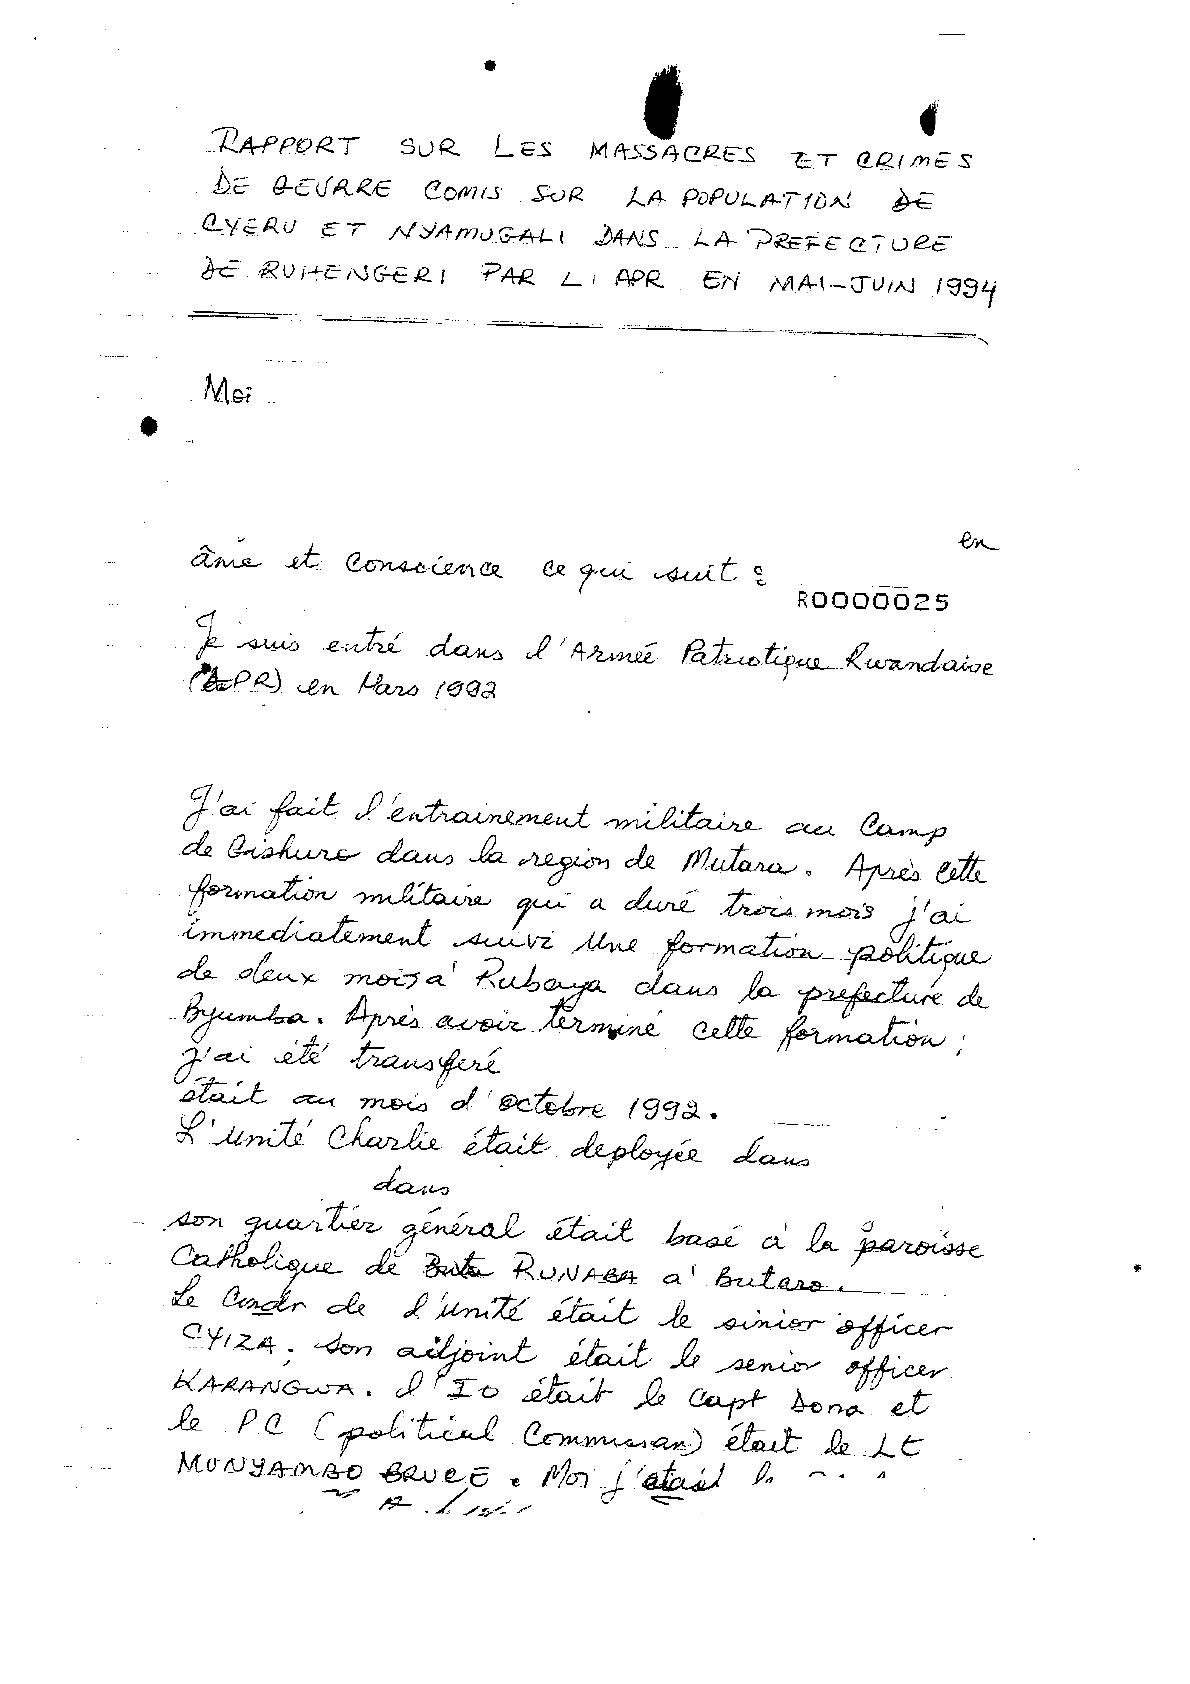 RAPPORT SUR LES MASSACRES ET CRIMES
DE GEURRE COMIS SUR LA POPULATION DE
CYERU ET NYAMUGALI DANS LA PREFECTURE
DE RUHENGERI PAR L'APR EN MAI-JUIN 1994
Moi
en
âme et conscience ce qui suit :
R0000025
Je suis entré dans l'Armée Patriotique Rwandaise
(APR) en Mars 1992
J'ai fait l'entrainement militaire au Camp
de Gishuro dans la region de Mutara. Après cette
formation militaire qui a duré trois mois j'ai
immediatement suivi une formation politique
de deux mois à Rubaya dans la prefecture de
Byumba. Après avoir terminé cette formation;
j'ai été transferé
était au mois d'octobre 1992.
L'unité Charlie était deployée dans
dans
son quartier général était basé à la paroisse
Catholique de RUNABA à Butaro.
Le Comdr de l'unité était le sinior officer
CYIZA; son adjoint était le senior officer
KARANGWA. l'IO était le Capt Dona et
le PC (political Commissar) était le Lt
MUNYAMBO BRUCE. Moi j'étais